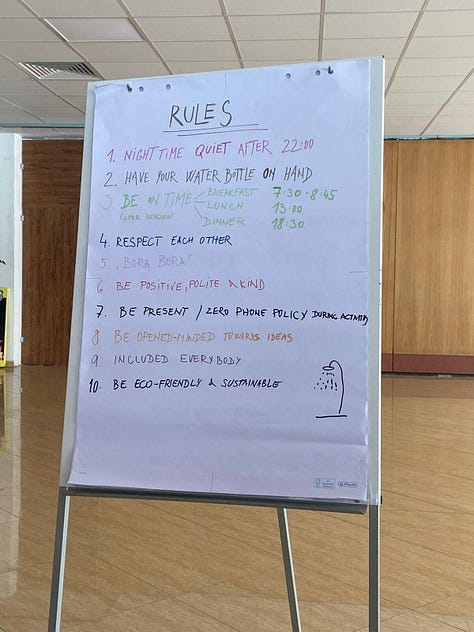 RULES
1. NIGHT TIME QUIET AFTER 22:00
2. HAVE YOUR WATER BOTTLE ON HAND
3. BE ON TIME BREAKFAST 7:30 - 8:45
↳ FOR SESSION LUNCH 13:00
DINNER 18:30
4. RESPECT EACH OTHER
5. "BORA BORA"
6. BE POSITIVE, POLITE & KIND
7. BE PRESENT / ZERO PHONE POLICY DURING ACTIVITY
8 BE OPENED-MINDED TOWARDS IDEAS
9. INCLUDED EVERYBODY
10. BE ECO-FRIENDLY & SUSTAINABLE